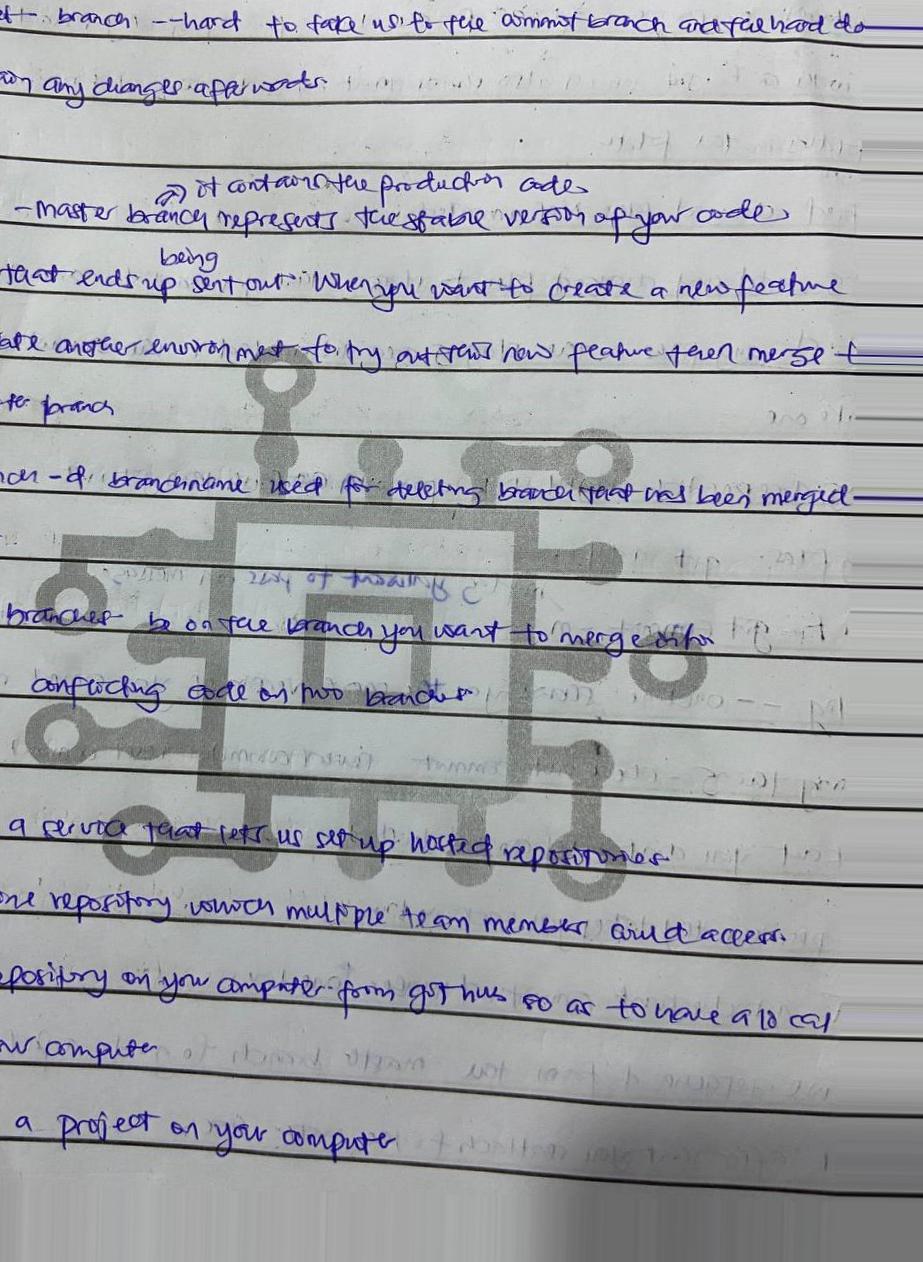 branch --hard to take us to the commit branch and the hard do
any changes afterwards.
it contains the production code
- master branch represents the stable version of your code
being
that ends up sent out. When you want to create a new feature
another environment to try out this new feature then merge t
branch
-d branchname used for deleting branch that has been merged
branches be on the branch you want to merge
conflicting code on two branches
a service that lets us set up hosted repositories
repository which multiple team members could access.
pository on your computer from github so as to have a local
computer
a project on your computer